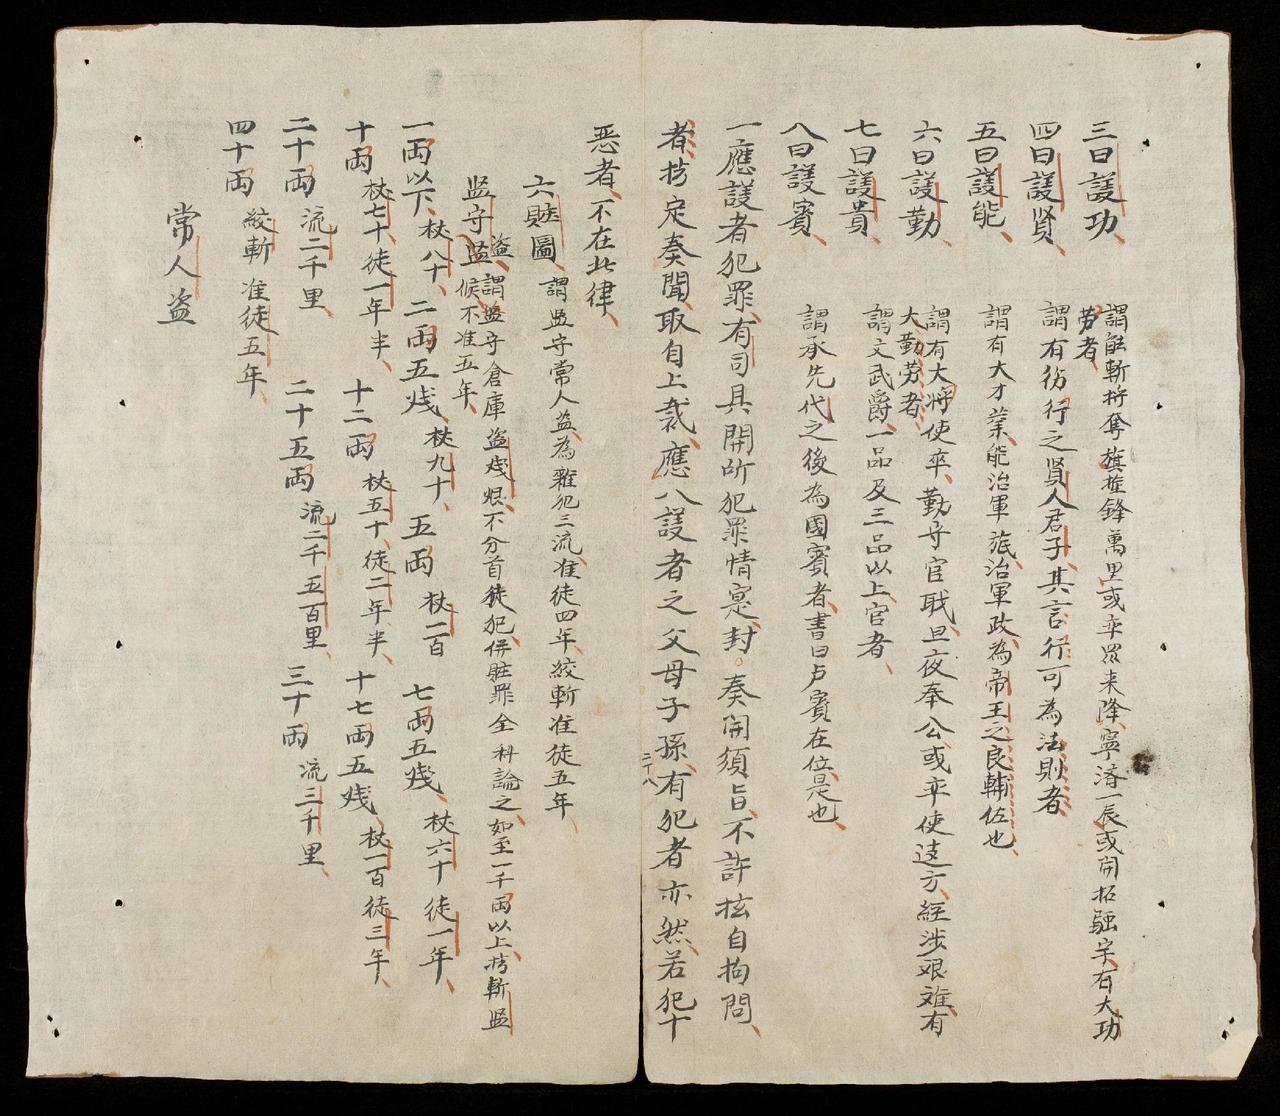 三曰議功、
謂能斬将奪旗摧鋒萬里或率眾来降、寧済一辰或開拓疆宇、有大功
劳者、
四曰議賢、
謂有徳行之賢人君子其言行可為法則者、
五曰議能、
謂有大才業能治軍旅治軍政、為帝王之良輔佐也、
六曰議勤、
謂有大将使卒、勤守官戢、旦夜奉公、或卒使远方、経涉艰难有
大勤劳者、
七曰議貴、
謂文武爵一品及三品以上官者、
八曰議賓、
謂承先代之後為國賓者、書曰卢賓在位是也、
一應議者犯罪、有司具開所犯罪情寔封。奏開須旨、不許拡自拘問、
者拷定奏聞、取自上裁、應八議者之父母子孫、有犯者亦然、若犯十
二十八
悪者、不在此律、
六賍圖、
謂监守常人盗為雜犯三流准徒四年、絞斬准徒五年、
监守监
盗、謂监守倉庫盗残恨不分首徒犯、併賍罪全科論之、如至一千両以上拷斬监
候、不准五年、
一両以下、杖八十、二両五残、杖九十、五両 杖一百 七両五残、杖六十徒一年、
十両 杖七十、徒一年半、十二両 杖五十、徒二年半、十七両五残、杖一百徒三年、
二十両 流二千里、二十五両 流二千五百里、三十両 流三千里、
四十両 絞斬准徒五年、
常人盗